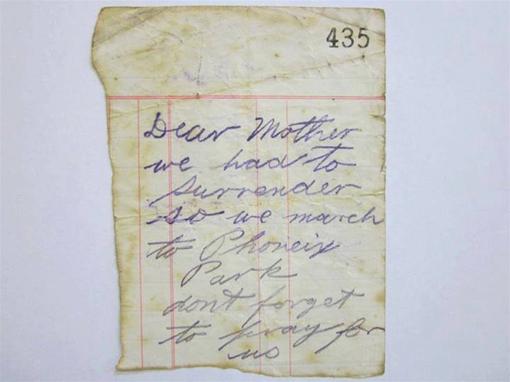 435
Dear Mother
we had to
surrender
so we march
to Phoneix
Park
dont forget
to pray for
us